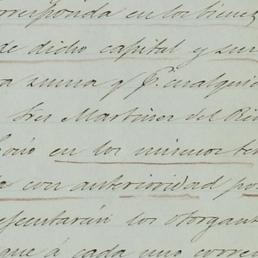 corresponda en los tiene
de dicho capital y sur
a suma y si cualquie
tres Martinez del Rio
en los mismos ter
con anterioridad po
esentarán los otorgant
que á cada uno corres